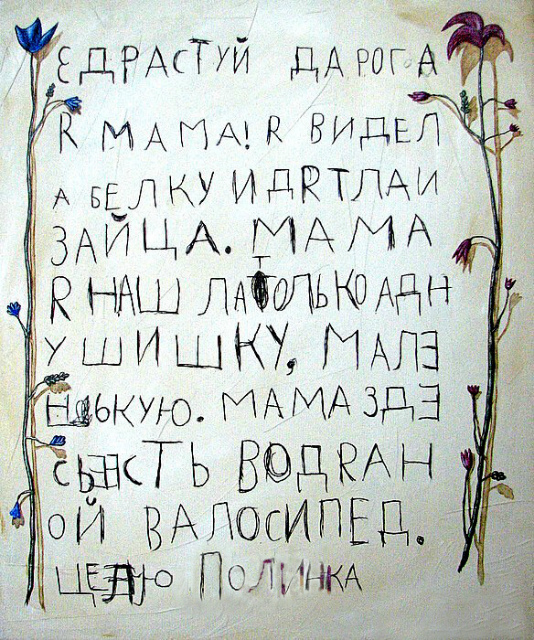 ЗДРАСТУЙ ДАРОГА
Я МАМА! Я ВИДЕЛ
А БЕЛКУ И ДЯТЛА И
ЗАЙЦА. МАМА
Я НАШЛА ТОЛЬКО АДН
У ШИШКУ, МАЛЕ
НЬКУЮ. МАМА ЗДЕ
СЬ ЕСТЬ ВОДЯАН
ОЙ ВАЛОСИПЕД.
ПОЛИНКА